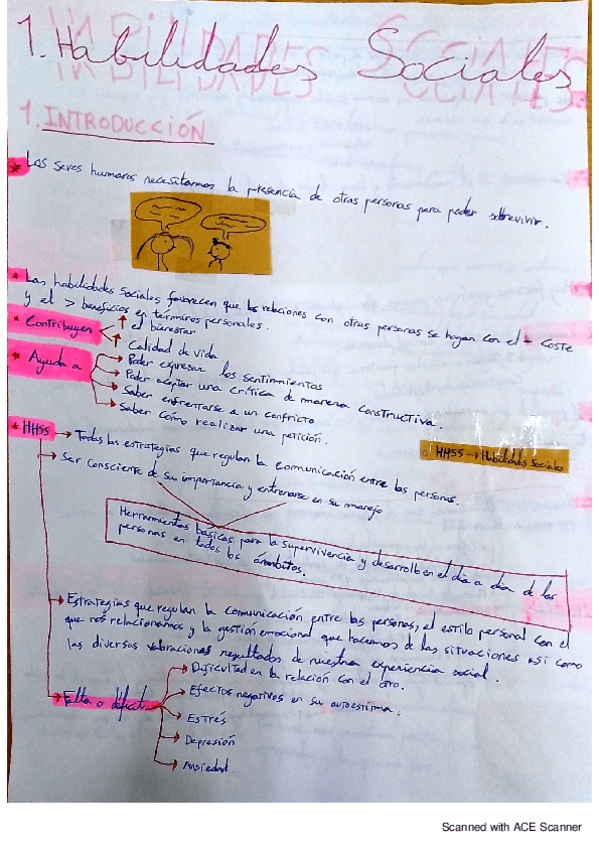 1. Habilidades Sociales
HABILIDADES SOCIALES
1. INTRODUCCIÓN
* Los seres humanos necesitamos la presencia de otras personas para poder sobrevivir.
* Las habilidades sociales favorecen que las relaciones con otras personas se hagan con el - coste
y el > beneficios en términos personales.
* Contribuyen
↑ el bienestar
↑ Calidad de vida
* Ayuda a
Poder expresar los sentimientos
Poder aceptar una crítica de manera constructiva.
Saber enfrentarse a un conflicto
Saber cómo realizar una petición.
HHSS → Habilidades Sociales
* HHSS → Todas las estrategias que regulan la comunicación entre las personas.
→ Ser consciente de su importancia y entrenarse en su manejo
Herramientas básicas para la supervivencia y desarrollo en el día a día de las
personas en todos los ámbitos.
→ Estrategias que regulan la comunicación entre las personas, el estilo personal con el
que nos relacionamos y la gestión emocional que hacemos de las situaciones así como
las diversas valoraciones resultados de nuestra experiencia social.
→ Falta o déficit
→ Dificultad en la relación con el otro.
→ Efectos negativos en su autoestima.
→ Estrés
→ Depresión
→ Ansiedad
Scanned with ACE Scanner